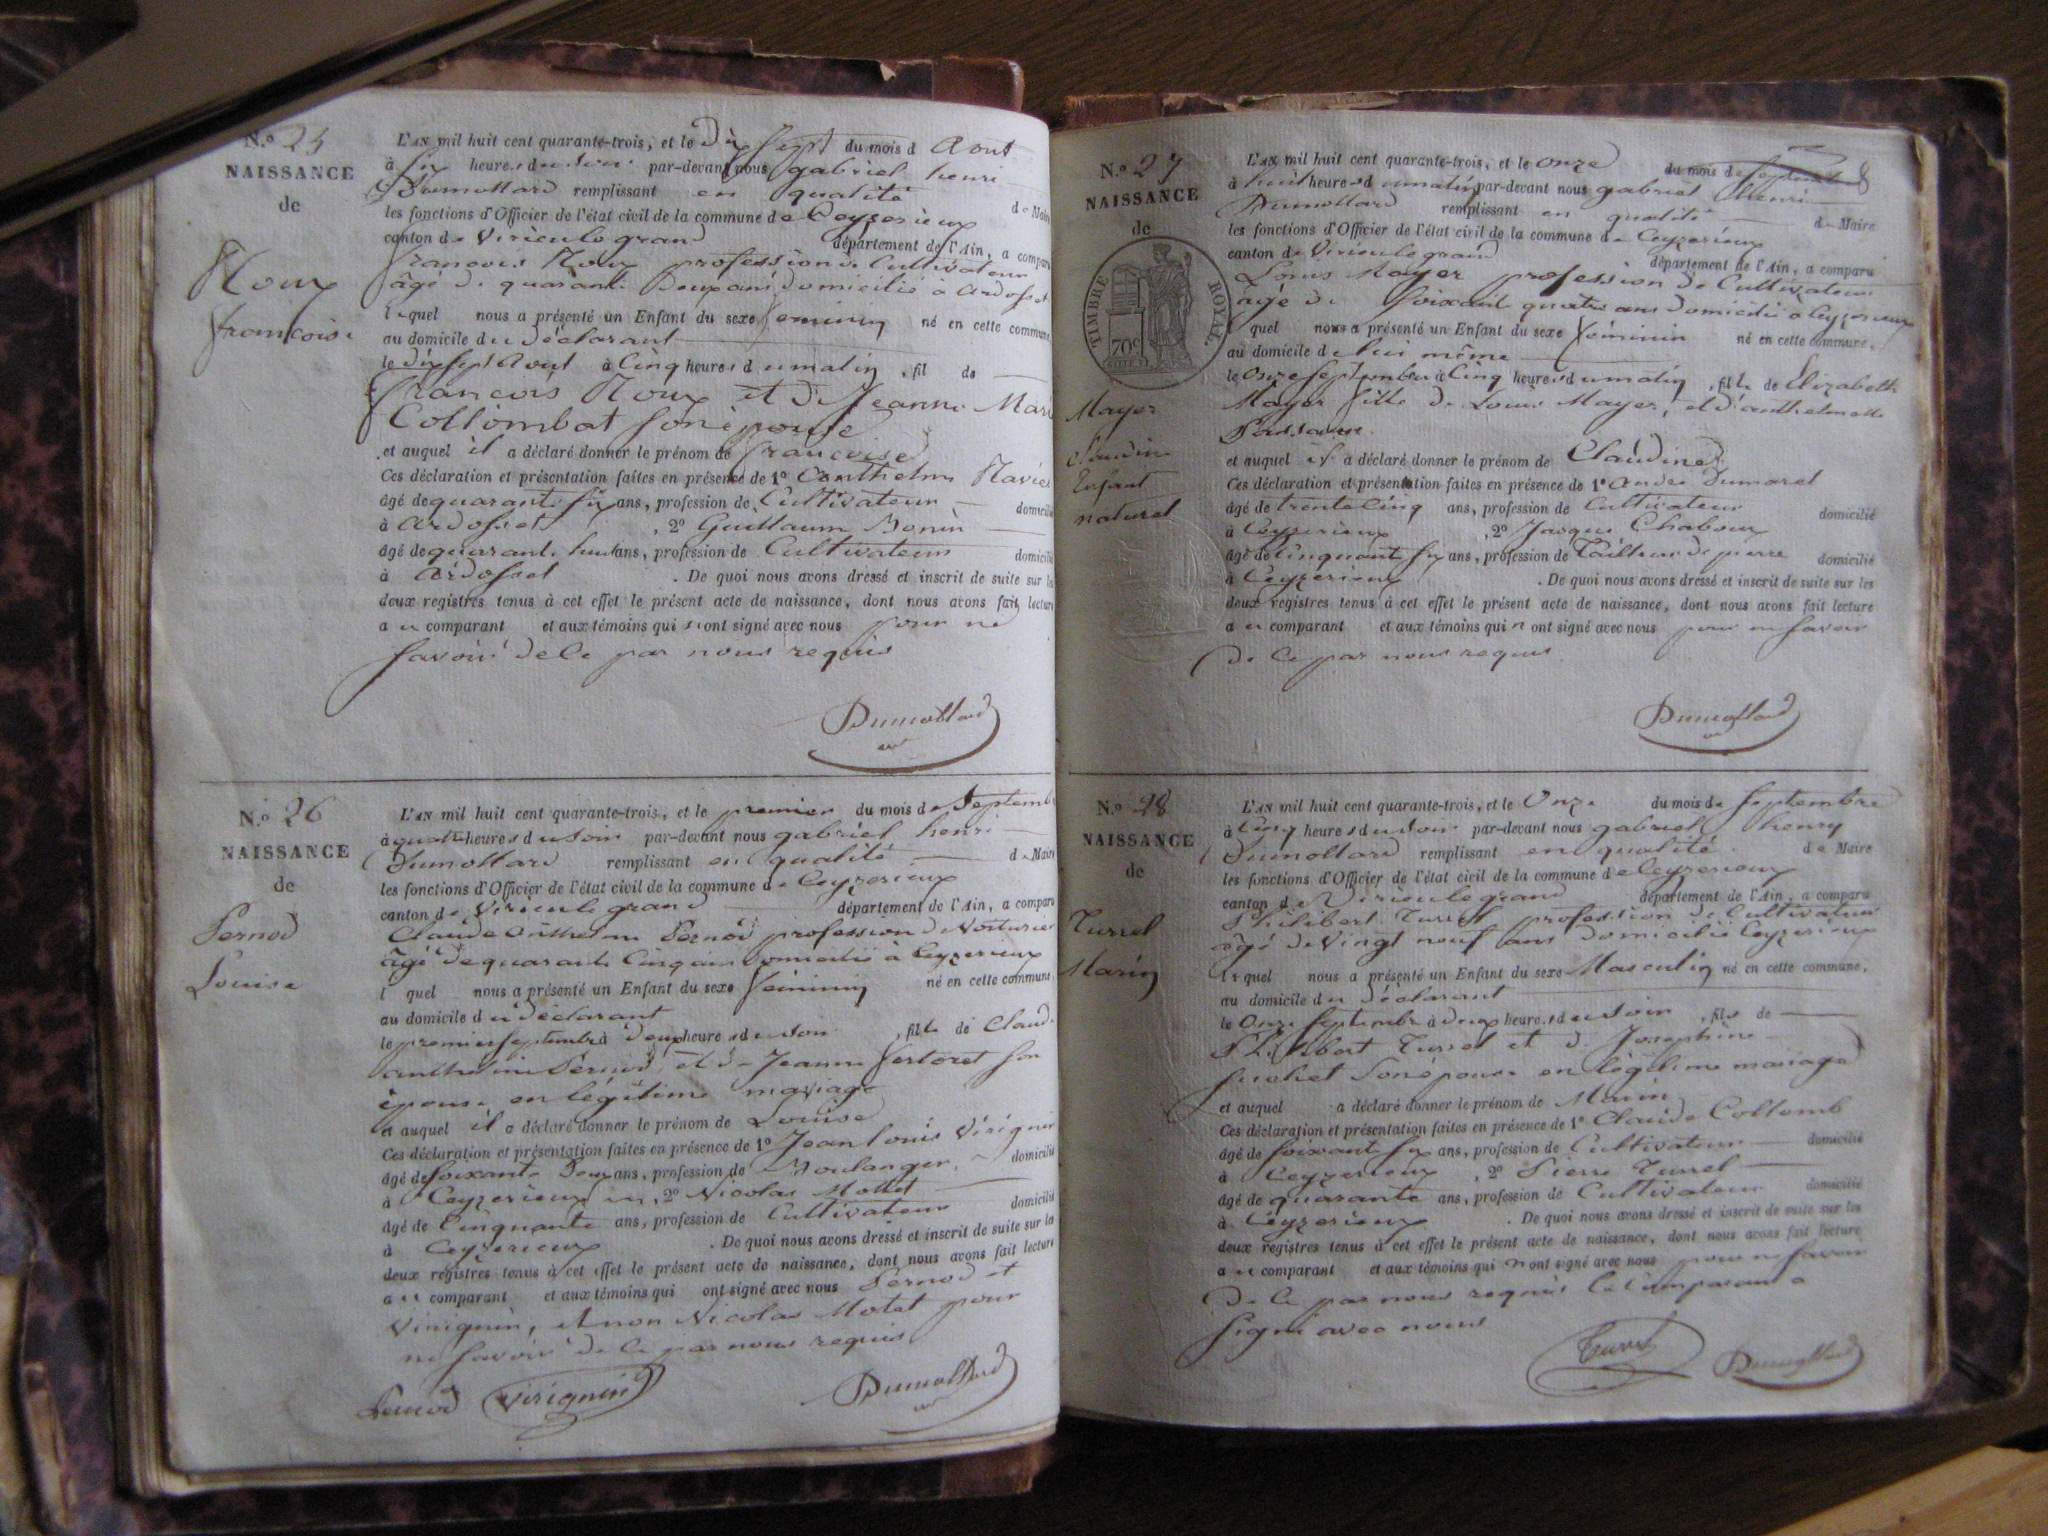 N.º 25
NAISSANCE
de
Roux
françoise
L'AN mil huit cent quarante-trois, et le Dix Sept du mois d Aout
à Six heures du soir par-devant nous gabriel henri
Dumollard remplissant en qualité de Maire
les fonctions d'Officier de l'état civil de la commune de Ceyzerieux
canton de Virieulegrand département de l'Ain, a comparu
francois Roux profession de Cultivateur
âgé de quarante Deux ans domicilié à ardosset
lequel nous a présenté un Enfant du sexe feminin né en cette commune,
au domicile du déclarant
le dix sept Aout à Cinq heures du matin, fil de
francois Roux et de Jeanne Marie
Collombat son épouse
et auquel il a déclaré donner le prénom de francoise
Ces déclaration et présentation faites en présence de 1º Anthelme
âgé de quarante six ans, profession de Cultivateur domicilié
à ardosset, 2º Guillaum Monin
âgé de quarante huit ans, profession de Cultivateur domicilié
à Ardosset. De quoi nous avons dressé et inscrit de suite sur les
deux registres tenus à cet effet le présent acte de naissance, dont nous avons fait lecture
au comparant et aux témoins qui n'ont signé avec nous pour ne
savoir de ce par nous requis
Dumollard
N.º 26
NAISSANCE
de
Pernod
Louise
L'AN mil huit cent quarante-trois, et le premier du mois de Septembre
à quatre heures du soir par-devant nous gabriel henri
Dumollard remplissant en qualité de Maire
les fonctions d'Officier de l'état civil de la commune de Ceyzerieux
canton de Virieulegrand département de l'Ain, a comparu
Claude Anthelme Pernod profession de Voiturier
âgé de quarante Cinq ans domicilié à Ceyzerieux
l quel nous a présenté un Enfant du sexe féminin né en cette commune,
au domicile du déclarant
le premier septembre à deux heures du soir, fille de Claude
anthelme Pernod et de Jeanne Sertoret son
épouse en légitime mariage
et auquel il a déclaré donner le prénom de Louise
Ces déclaration et présentation faites en présence de 1º Jean louis Virignin
âgé de soixante Deux ans, profession de Boulanger domicilié
à Ceyzerieux, 2º Nicolas Mottet
âgé de Cinquante ans, profession de Cultivateur domicilié
à Ceyzerieux. De quoi nous avons dressé et inscrit de suite sur les
deux registres tenus à cet effet le présent acte de naissance, dont nous avons fait lecture
au comparant et aux témoins qui ont signé avec nous Pernod et
Virignin, et non Nicolas Motet pour
ne savoir de ce par nous requis
Pernod Virignin Dumollard
8
N.º 27
NAISSANCE
de
TIMBRE ROYAL
70c
Mayer
Claudine
Enfant
naturel
L'AN mil huit cent quarante-trois, et le onze du mois de septembre
à huit heures du matin par-devant nous gabriel henri
Dumollard remplissant en qualité de Maire
les fonctions d'Officier de l'état civil de la commune de Ceyzerieux
canton de Virieulegrand département de l'Ain, a comparu
Louis Mayer profession de Cultivateur
âgé de soixante quatre ans domicilié à Ceyzerieux
l quel nous a présenté un Enfant du sexe féminin né en cette commune,
au domicile de lui même
le onze septembre à Cinq heures du matin, fille de Elizabeth
Mayer fille de Louis Mayer, et d'anthelmette
et auquel il a déclaré donner le prénom de Claudine
Ces déclaration et présentation faites en présence de 1º André Dumarest
âgé de trente Cinq ans, profession de Cultivateur domicilié
à Ceyzerieux, 2º Jacque Chaboux
âgé de Cinquante six ans, profession de Tailleur de pierre domicilié
à Ceyzerieux. De quoi nous avons dressé et inscrit de suite sur les
deux registres tenus à cet effet le présent acte de naissance, dont nous avons fait lecture
au comparant et aux témoins qui n'ont signé avec nous pour ne savoir
de ce par nous requis
Dumollard
N.º 28
NAISSANCE
de
Turrel
Marin
L'AN mil huit cent quarante-trois, et le Onze du mois de septembre
à Cinq heures du soir par-devant nous gabriel henry
Dumollard remplissant en qualité de Maire
les fonctions d'Officier de l'état civil de la commune de Ceyzerieux
canton de Virieulegrand département de l'Ain, a comparu
Philibert Turrel profession de Cultivateur
âgé de Vingt neuf ans domicilié Ceyzerieux
lequel nous a présenté un Enfant du sexe Masculin né en cette commune,
au domicile du déclarant
le Onze septembre à deux heures du soir, fils de
Philibert Turrel et de Josephine
fuchet son épouse en légitime mariage
et auquel a déclaré donner le prénom de Marin
Ces déclaration et présentation faites en présence de 1º Claude Collomb
âgé de soixante six ans, profession de Cultivateur domicilié
à Ceyzerieux, 2º Pierre Turrel
âgé de quarante ans, profession de Cultivateur domicilié
à Ceyzerieux. De quoi nous avons dressé et inscrit de suite sur les
deux registres tenus à cet effet le présent acte de naissance, dont nous avons fait lecture
au comparant et aux témoins qui n'ont signé avec nous pour ne savoir
de ce par nous requis le Comparant a
signé avec nous
Turrel Dumollard